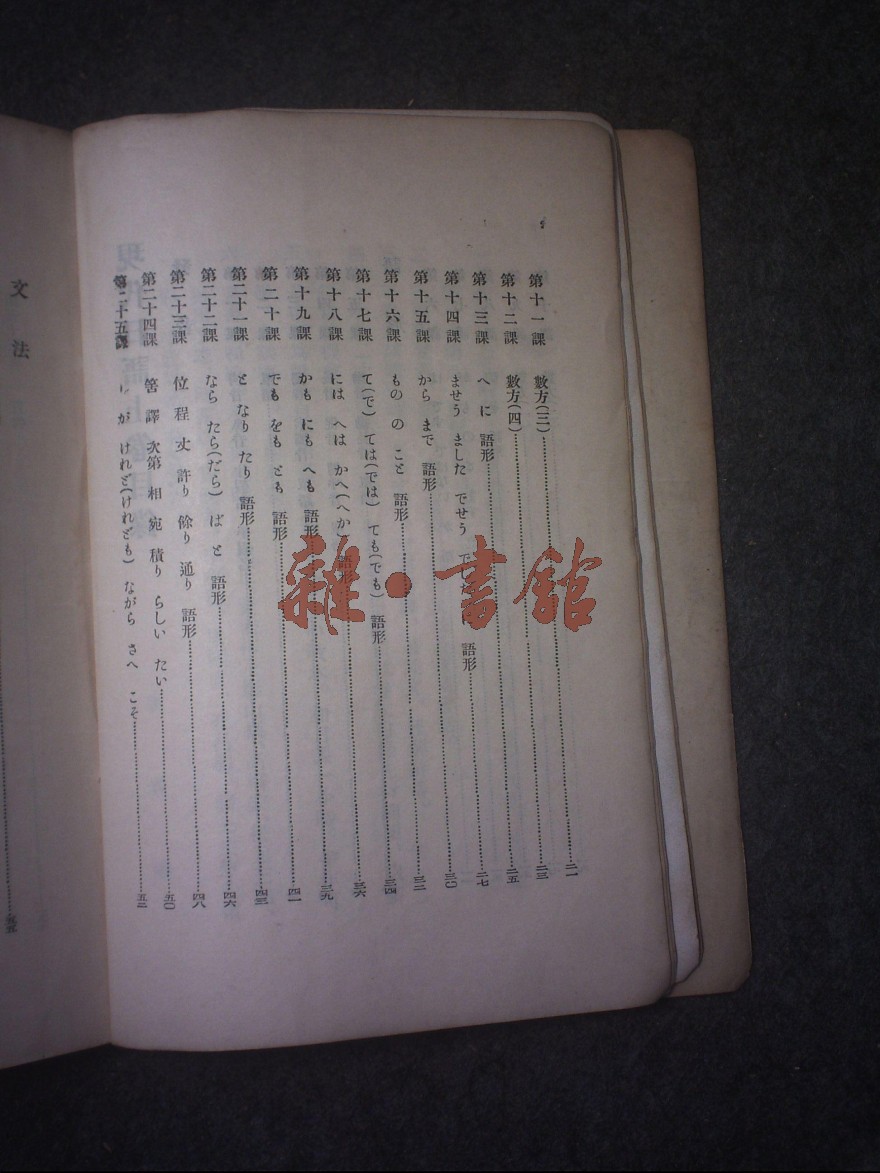 第十一課 數方(三)……二一
第十二課 數方(四)……二三
第十三課 へ に 語形……二五
第十四課 ませう ました でせう 語形……二七
第十五課 から まで 語形……三〇
第十六課 もの の こと 語形……三二
第十七課 て(で) ては(では) ても(でも) 語形……三四
第十八課 には へは かへ(へか) 語形……三六
第十九課 かも にも へも 語形……三九
第二十課 でも をも とも 語形……四一
第二十一課 と なり たり 語形……四三
第二十二課 なら たら(だら) ば と 語形……四六
第二十三課 位 程 丈 許り 餘り 通り 語形……四八
第二十四課 筈 譯 次第 相 宛 積り らしい たい……五〇
第二十五課 が けれど(けれども) ながら さへ こそ……五二
文法
雜·書館